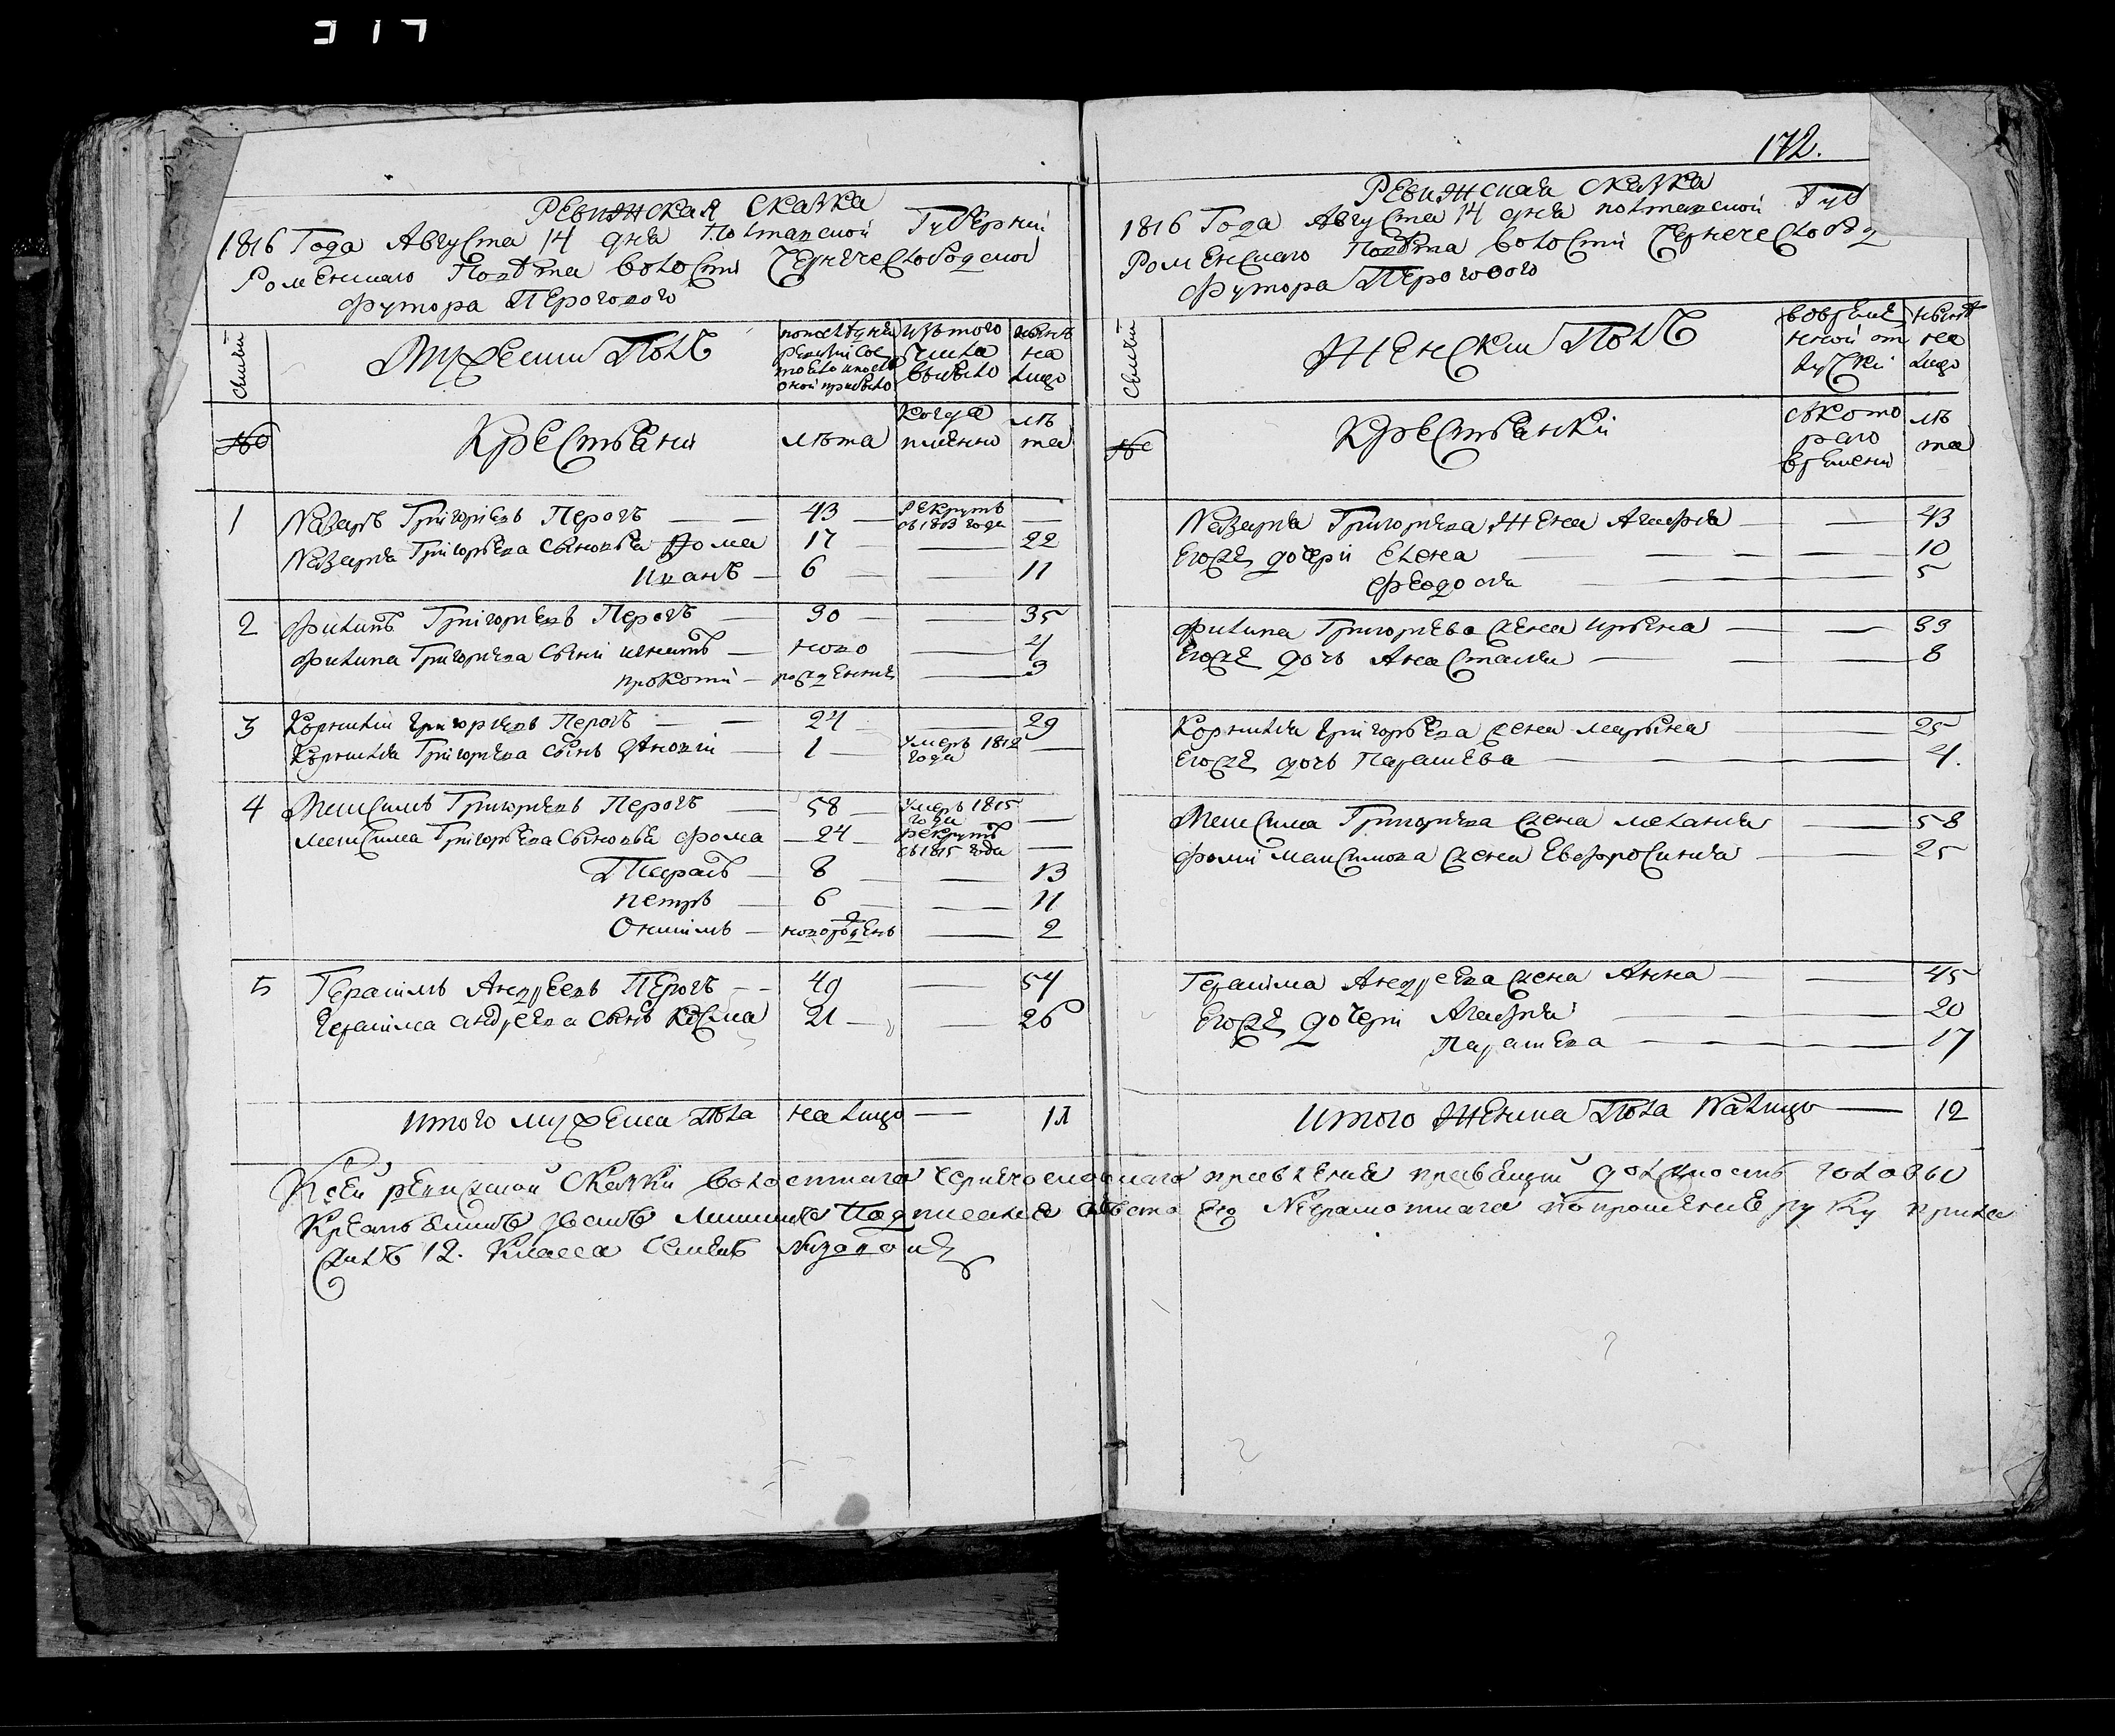 317
Ревижская Сказка
1816 Года Августа 14 дня Полтавской Губернии
Роменскаго Повѣта волости Чернечеслободской
Футора Перогового
Семьи
Мужески Полъ
По последней ревизии состояло и после оной прибыло
Изъ того числа выбыло
Нынѣ на лицо
№
Крестьяни
лѣта
Когда имянно
лѣта
1 Назаръ Григориевъ Перогъ — — 43 — Рекрутъ съ 1813 года —
Назара Григорьева Сыновья Фома 17 — 22
Иванъ — 6 — — 11
2 Филипъ Григориевъ Перогъ — 30 — — 35
Филипа Григориева Сыни Игнатъ — ново — 4
прокопій — рожденние — 3
3 Корнилій Григориевъ Перогъ — — 24 — 29
Корнилія Григориева Сынъ 1 — Умеръ 1812 года —
4 Максимъ Григориевъ Перогъ — 58 — Умеръ 1815 года —
Максима Григорьева Сыновья Фома — 24 — рекрутъ съ 1815 года —
Тарасъ — 8 — — 13
петръ — 6 — — 11
Онисимъ — новорожденъ — 2
5 Герасимъ Андреевъ Перогъ — — 49 — 54
Герасима андреева Сынъ Косма 21 — — 26
Итого мужеска Пола на лицо — 11
172.
Ревижская Сказка
1816 Года Августа 14 дня полтавской Губ
Роменскаго Повѣта волости Чернечеслобод
Футора Перогового
Семьи
Женски Полъ
Во временной отлучки
Нынѣ на лицо
№
Крестьянки
Съ которого времени
лѣта
Назара Григориева Жена Агафия — — 43
Егоже дочери Елена — — — — 10
Феодосия — — — 5
Филипа Григориева жена Ирына — — 33
Егоже дочь Анастасия — — — 8
Корнилия Григорьева жена марына — 25
Егоже дочь Параскева — — — 4.
Максима Григориева жена мелания — 58
Фоми Максимова жена Евфросиния — — 25
Герасима Андреева жена Анна — — 45
Егоже дочери Агафия — — — 20
Параскева — — — 17
Итого Женска Пола Налицо — 12
Ксей ревижской Сказки волостнаго чернечослободскаго правления правящий должность головы
Крестьянинъ подписания вместо его Неграмотнаго по прошению руку прило
жилъ 12. Класса